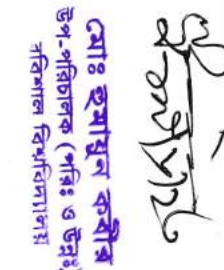 মোঃ হুমায়ুন কবীর
উপ-পরিচালক (পরিঃ ও উন্নঃ)
বরিশাল বিশ্ববিদ্যালয়